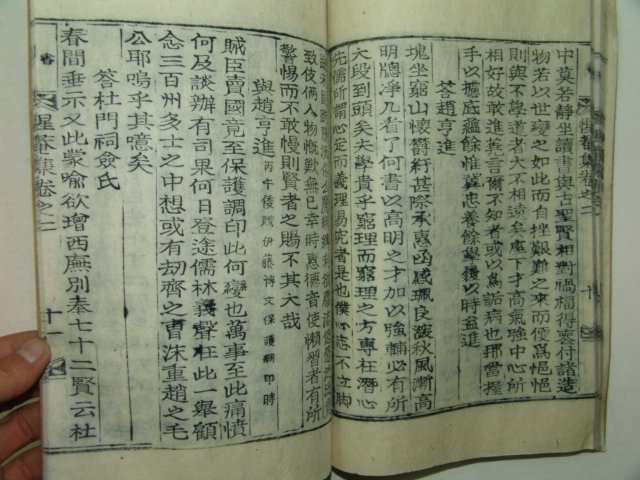 中莫若靜坐讀書與古聖賢相對膈膈得喪付諸造
物若以世變之如此而自挫艱難之來而便爲悒悒
則與不學道者大不相遠矣座下才高氣強中心所
相好故敢進善言爾不知者或以爲詬病也挪當握
手以攄底蘊餘惟冀忠養餘學履以時益進
答趙亨進
塊坐窮山懷欝紆甚際承惠函感珮良深秋風漸高
明牕凈几看了何書以高明之才加以強輔心有所
大段到頭矣夫學貴乎窮理而窮理之方專在潛心
先儒所謂心定而義理易究者是也僕心志不立脚
致使俩人物慨歎無已幸時惠德音使懶習者有所
警惕而不敢慢則賢者之賜不其大哉
與趙亨進 丙午倭賊伊藤博文保護調印時
賊臣賣國竟至保護調印此何變也萬事至此痛憤
何及談辦有司果何日登途儒林義聲在此一舉顧
念三百州多士之中想或有劫齊之曹沫重趙之毛
公耶嗚乎其噫矣
答杜門祠僉氏
春間垂示又此蒙喩欲增西廡別奉七十二賢云社
書
惺菴集卷之二
十一